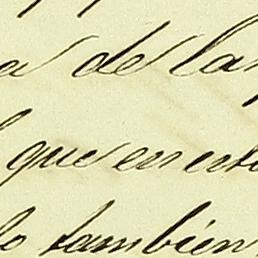 a de la
que en est
lo tambien